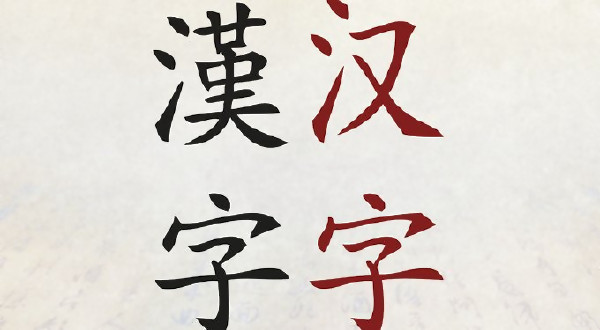 漢字
汉字